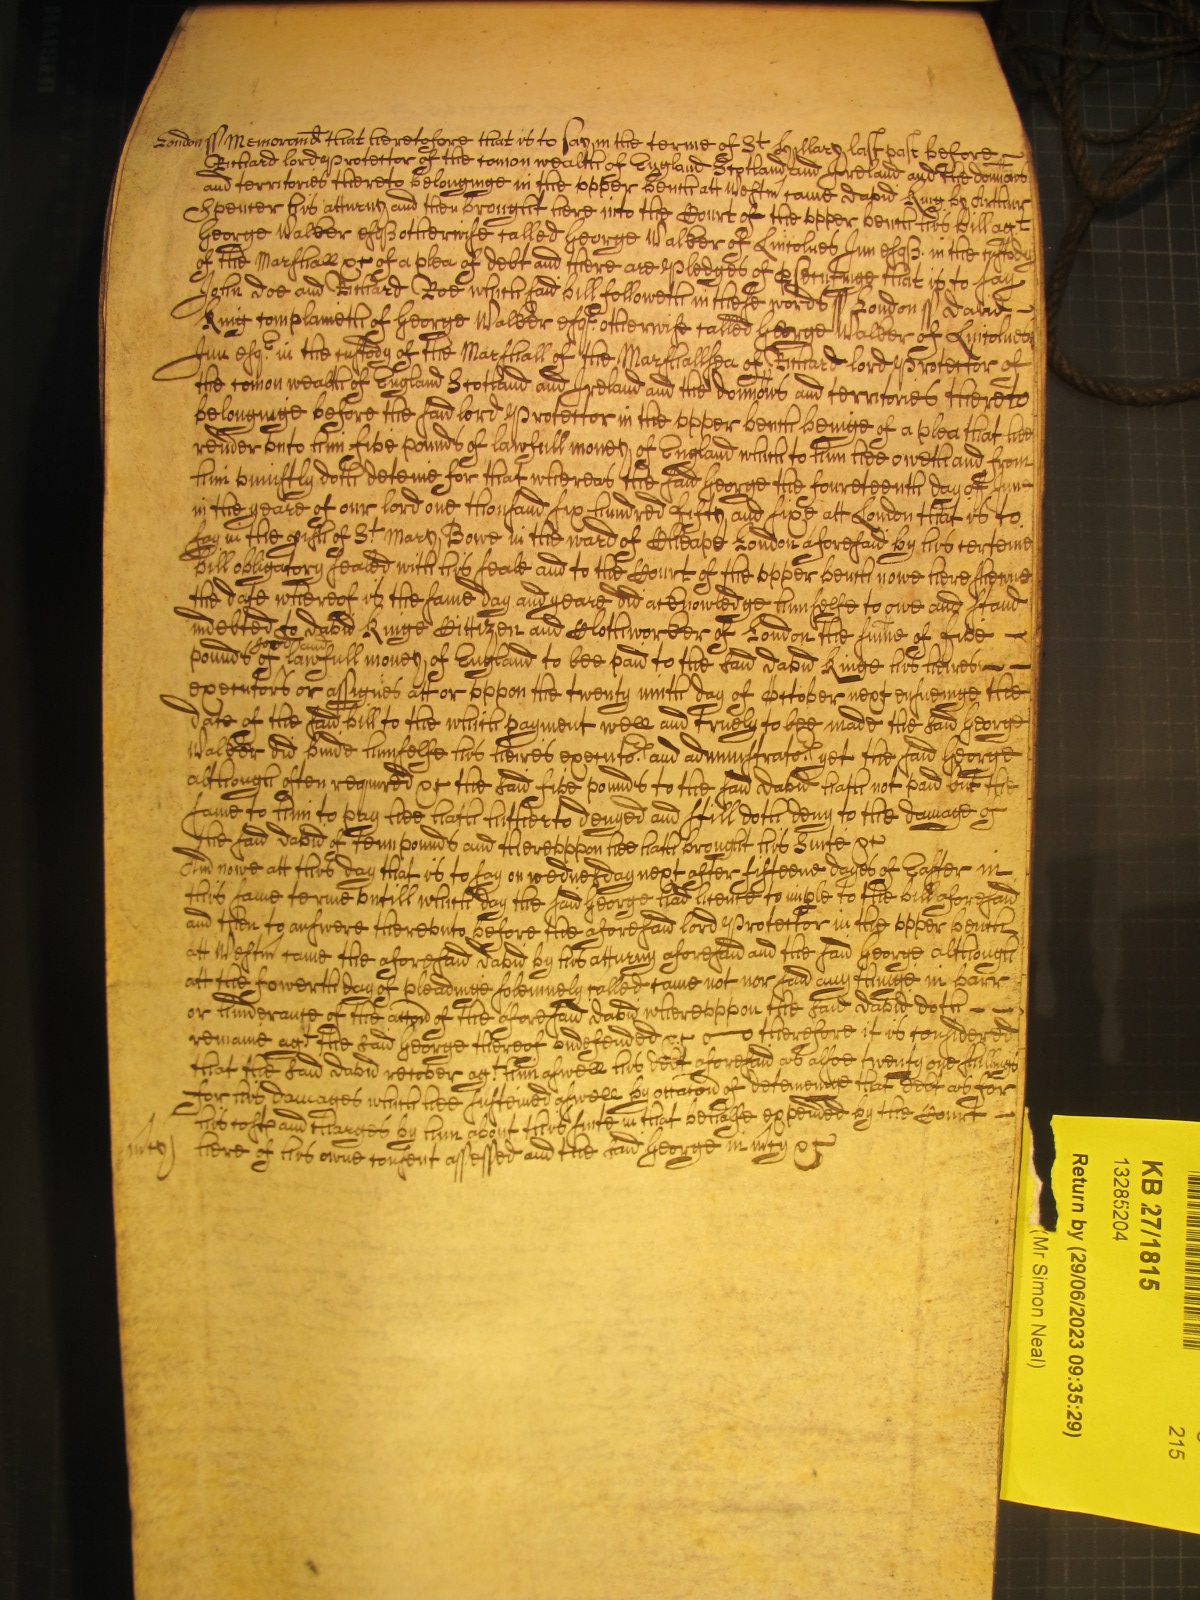 London ss Memorand that heretofore that is to say in the terme of St Hillary last past before
Richard lord Protector of the comon wealth of England Scotland and Ireland and the dominions
and territories thereto belonginge in the upper bench att Westm came David King by Arthur
Spencer his atturny and then brought here into the Court of the upper bench his bill agt
George Walker esqr otherwise called George Walker of Lincolnes Inn esqr in the custody
of the Marshall &c of a plea of debt and there are Pledges of psecutinge that is to say
John Doe and Richard Roe which said bill followeth in these words ss London ss David
King complaineth of George Walker esqr otherwise called George Walker of Lincolnes
Inn esqr in the custody of the Marshall of the Marshallsea of Richard lord Protector of
the comon wealth of England Scotland and Ireland and the dominions and territories thereto
belonginge before the said lord Protector in the upper bench beinge of a plea that hee
render unto him five pounds of lawfull money of England which to him hee oweth and from
him uniustly doth deteine for that whereas the said George the fourteenth day of June
in the yeare of our lord one thousand six hundred fifty and sixe att London that is to
say in the pish of St Mary Bowe in the ward of Cheape London aforesaid by his certeine
bill obligatory sealed with his seale and to the Court of the upper bench nowe here shewne
the date whereof is the same day and yeare did acknowledge himselfe to owe and stand
indebted to David Kinge Cittizen and Clothworker of London the summe of five
pounds of good and lawfull money of England to bee paid to the said David Kinge his heires
executors or assignes att or uppon the twenty ninth day of October next ensueinge the
date of the said bill to the which payment well and truely to bee made the said George
Walker did binde himselfe his heires executors and administrators yet the said George
although often required &c the said five pounds to the said David hath not paid but the
same to him to pay hee hath hitherto denyed and still doth deny to the damage of
the said David of tenn pounds and thereuppon hee hath brought his suite &c
And nowe att this day that is to say on wednesday next after fifteene dayes of Easter in
this same terme untill which day the said George had licence to imple to the bill aforesaid
and then to answere thereunto before the aforesaid lord Protector in the upper bench
att Westm came the aforesaid David by his atturny aforesaid and the said George although
att the fowerth day of pleadinge solemnely called came not nor said any thinge in barr
or hinderance of the accon of the aforesaid David whereuppon the said David doth
remaine agt the said George thereof undefended &c therefore it is considered
that the said David recover agt him aswell his debt aforesaid as alsoe twenty one shillings
for his damages which hee susteined aswell by occacon of deteineinge that debt as for
his costs and charges by him about his suite in that behalfe expended by the Court
mcy here of his owne consent assessed and the said George in mcy &c
KB 27/1815
13285204
Return by (29/06/2023 09:35:29)
(Mr Simon Neal)
215